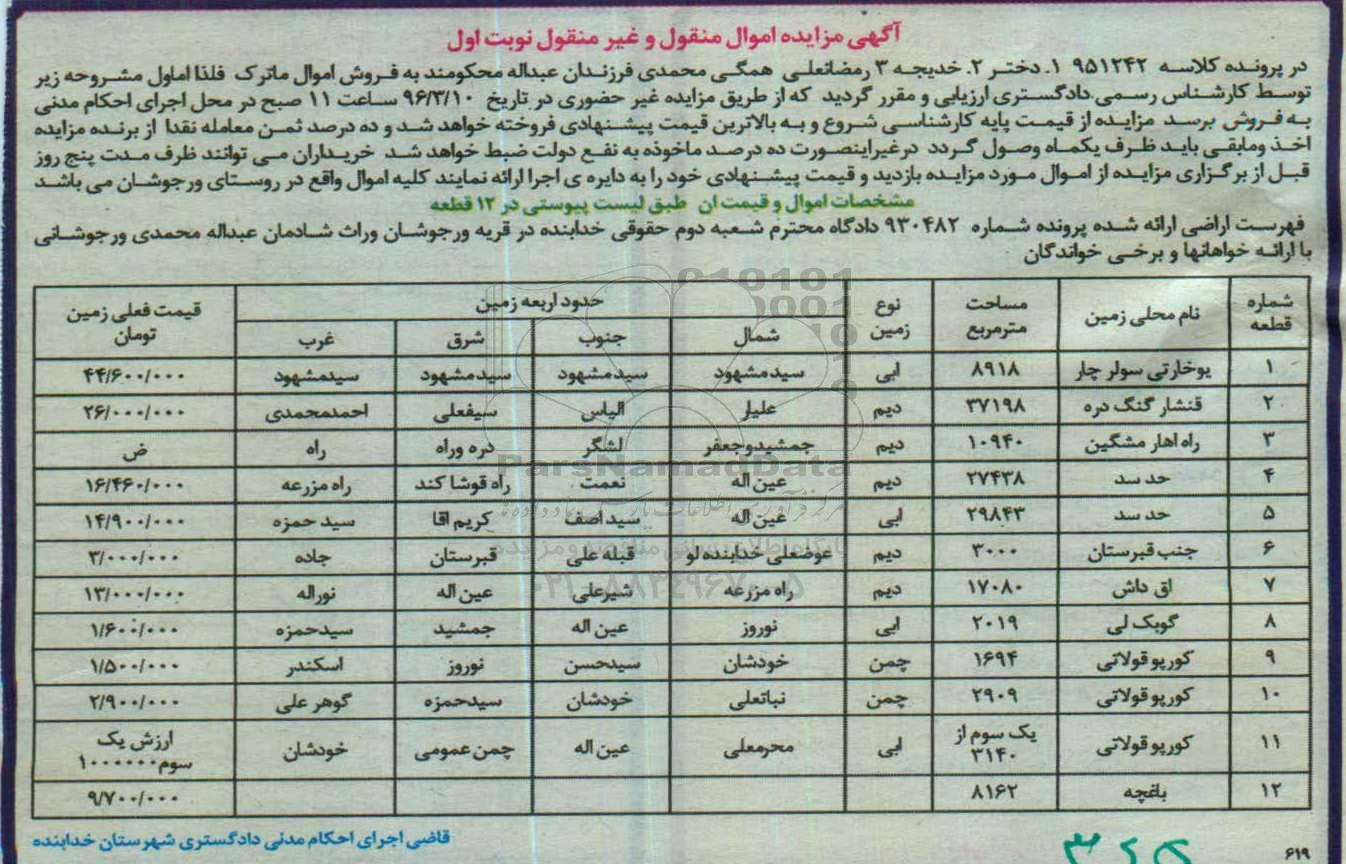 آگهی مزایده اموال منقول و غیر منقول نوبت اول
در پرونده کلاسه ۹۵۱۲۴۲ ۱. دختر ۲. خدیجه ۳ رمضانعلی همگی محمدی فرزندان عبداله محکومند به فروش اموال ماترک فلذا اماول مشروحه زیر
توسط کارشناس رسمی دادگستری ارزیابی و مقرر گردید که از طریق مزایده غیر حضوری در تاریخ ۹۶/۳/۱۰ ساعت ۱۱ صبح در محل اجرای احکام مدنی
به فروش برسد مزایده از قیمت پایه کارشناسی شروع و به بالاترین قیمت پیشنهادی فروخته خواهد شد و ده درصد ثمن معامله نقدا از برنده مزایده
اخذ ومابقی باید ظرف یکماه وصول گردد درغیراینصورت ده درصد ماخوذه به نفع دولت ضبط خواهد شد خریداران می توانند ظرف مدت پنج روز
قبل از برگزاری مزایده از اموال مورد مزایده بازدید و قیمت پیشنهادی خود را به دایره ی اجرا ارائه نمایند کلیه اموال واقع در روستای ورجوشان می باشد
مشخصات اموال و قیمت ان طبق لیست پیوستی در ۱۲ قطعه
فهرست اراضی ارائه شده پرونده شماره ۹۳۰۴۸۲ دادگاه محترم شعبه دوم حقوقی خدابنده در قریه ورجوشان وراث شادمان عبداله محمدی ورجوشانی
با ارائه خواهانها و برخی خواندگان
شماره قطعه نام محلی زمین مساحت مترمربع نوع زمین حدود اربعه زمین قیمت فعلی زمین تومان
شمال جنوب شرق غرب
۱ یوخارتی سولر چار ۸۹۱۸ ابی سیدمشهود سیدمشهود سیدمشهود سیدمشهود ۴۴/۶۰۰/۰۰۰
۲ قنشار گنگ دره ۳۷۱۹۸ دیم علیار الیاس سیفعلی احمدمحمدی ۲۶/۰۰۰/۰۰۰
۳ راه اهار مشگین ۱۰۹۴۰ دیم جمشیدوجعفر لشگر دره وراه راه ض
۴ حد سد ۲۷۴۳۸ دیم عین اله نعمت راه قوشا کند راه مزرعه ۱۶/۴۶۰/۰۰۰
۵ حد سد ۲۹۸۴۳ ابی عین اله سید اصف کریم اقا سید حمزه ۱۴/۹۰۰/۰۰۰
۶ جنب قبرستان ۳۰۰۰ دیم عوضعلی خدابنده لو قبله علی قبرستان جاده ۳/۰۰۰/۰۰۰
۷ اق داش ۱۷۰۸۰ دیم راه مزرعه شیرعلی عین اله نوراله ۱۳/۰۰۰/۰۰۰
۸ گوبک لی ۲۰۱۹ ابی نوروز عین اله جمشید سیدحمزه ۱/۶۰۰/۰۰۰
۹ کورپو قولاتی ۱۶۹۴ چمن خودشان سیدحسن نوروز اسکندر ۱/۵۰۰/۰۰۰
۱۰ کورپو قولاتی ۲۹۰۹ چمن نباتعلی خودشان سیدحمزه گوهر علی ۲/۹۰۰/۰۰۰
۱۱ کورپو قولاتی یک سوم از ۳۱۴۰ ابی محرمعلی عین اله چمن عمومی خودشان ارزش یک سوم۱۰۰۰۰۰۰
۱۲ باغچه ۸۱۶۲ ۹/۷۰۰/۰۰۰
قاضی اجرای احکام مدنی دادگستری شهرستان خدابنده
۶۱۹
ParsNamadData